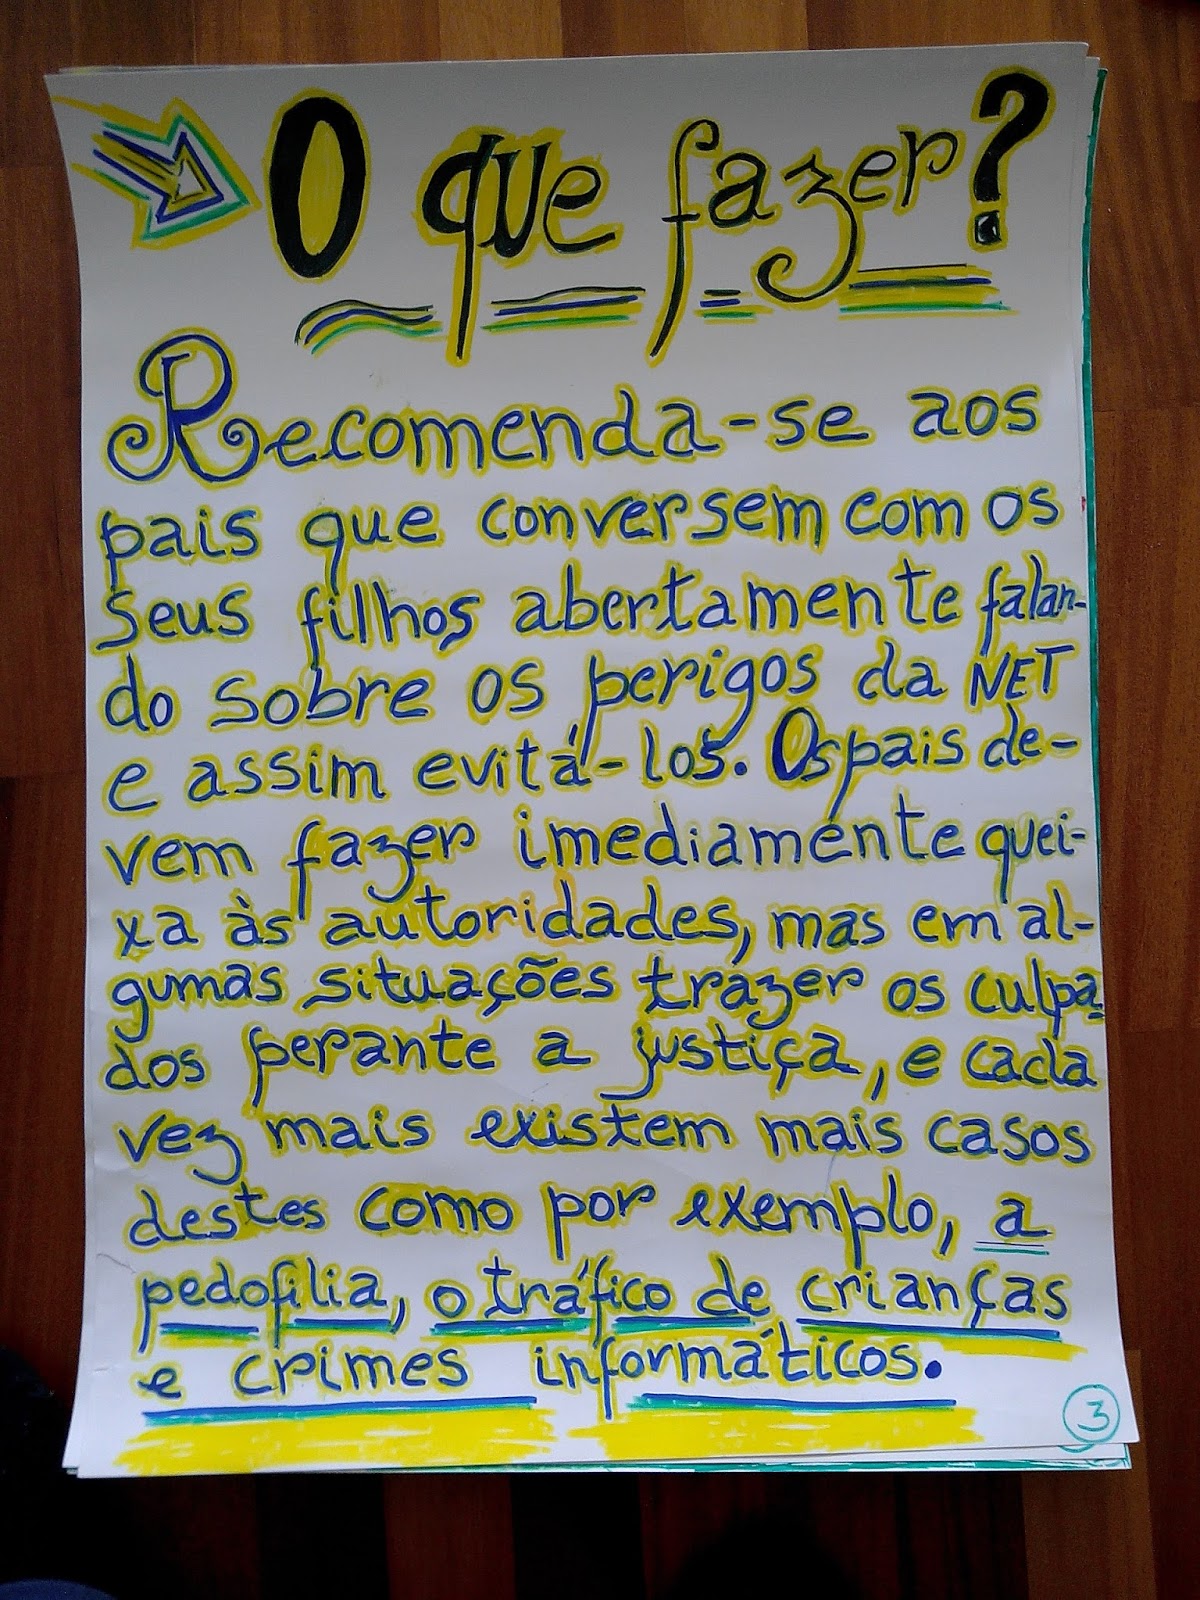 O que fazer?
Recomenda-se aos
pais que conversem com os
seus filhos abertamente falan-
do sobre os perigos da NET
e assim evitá-los. Os pais de-
vem fazer imediamente quei-
xa às autoridades, mas em al-
gumas situações trazer os culpa
dos perante a justiça, e cada
vez mais existem mais casos
destes como por exemplo, a
pedofilia, o tráfico de crianças
e crimes informáticos.
3